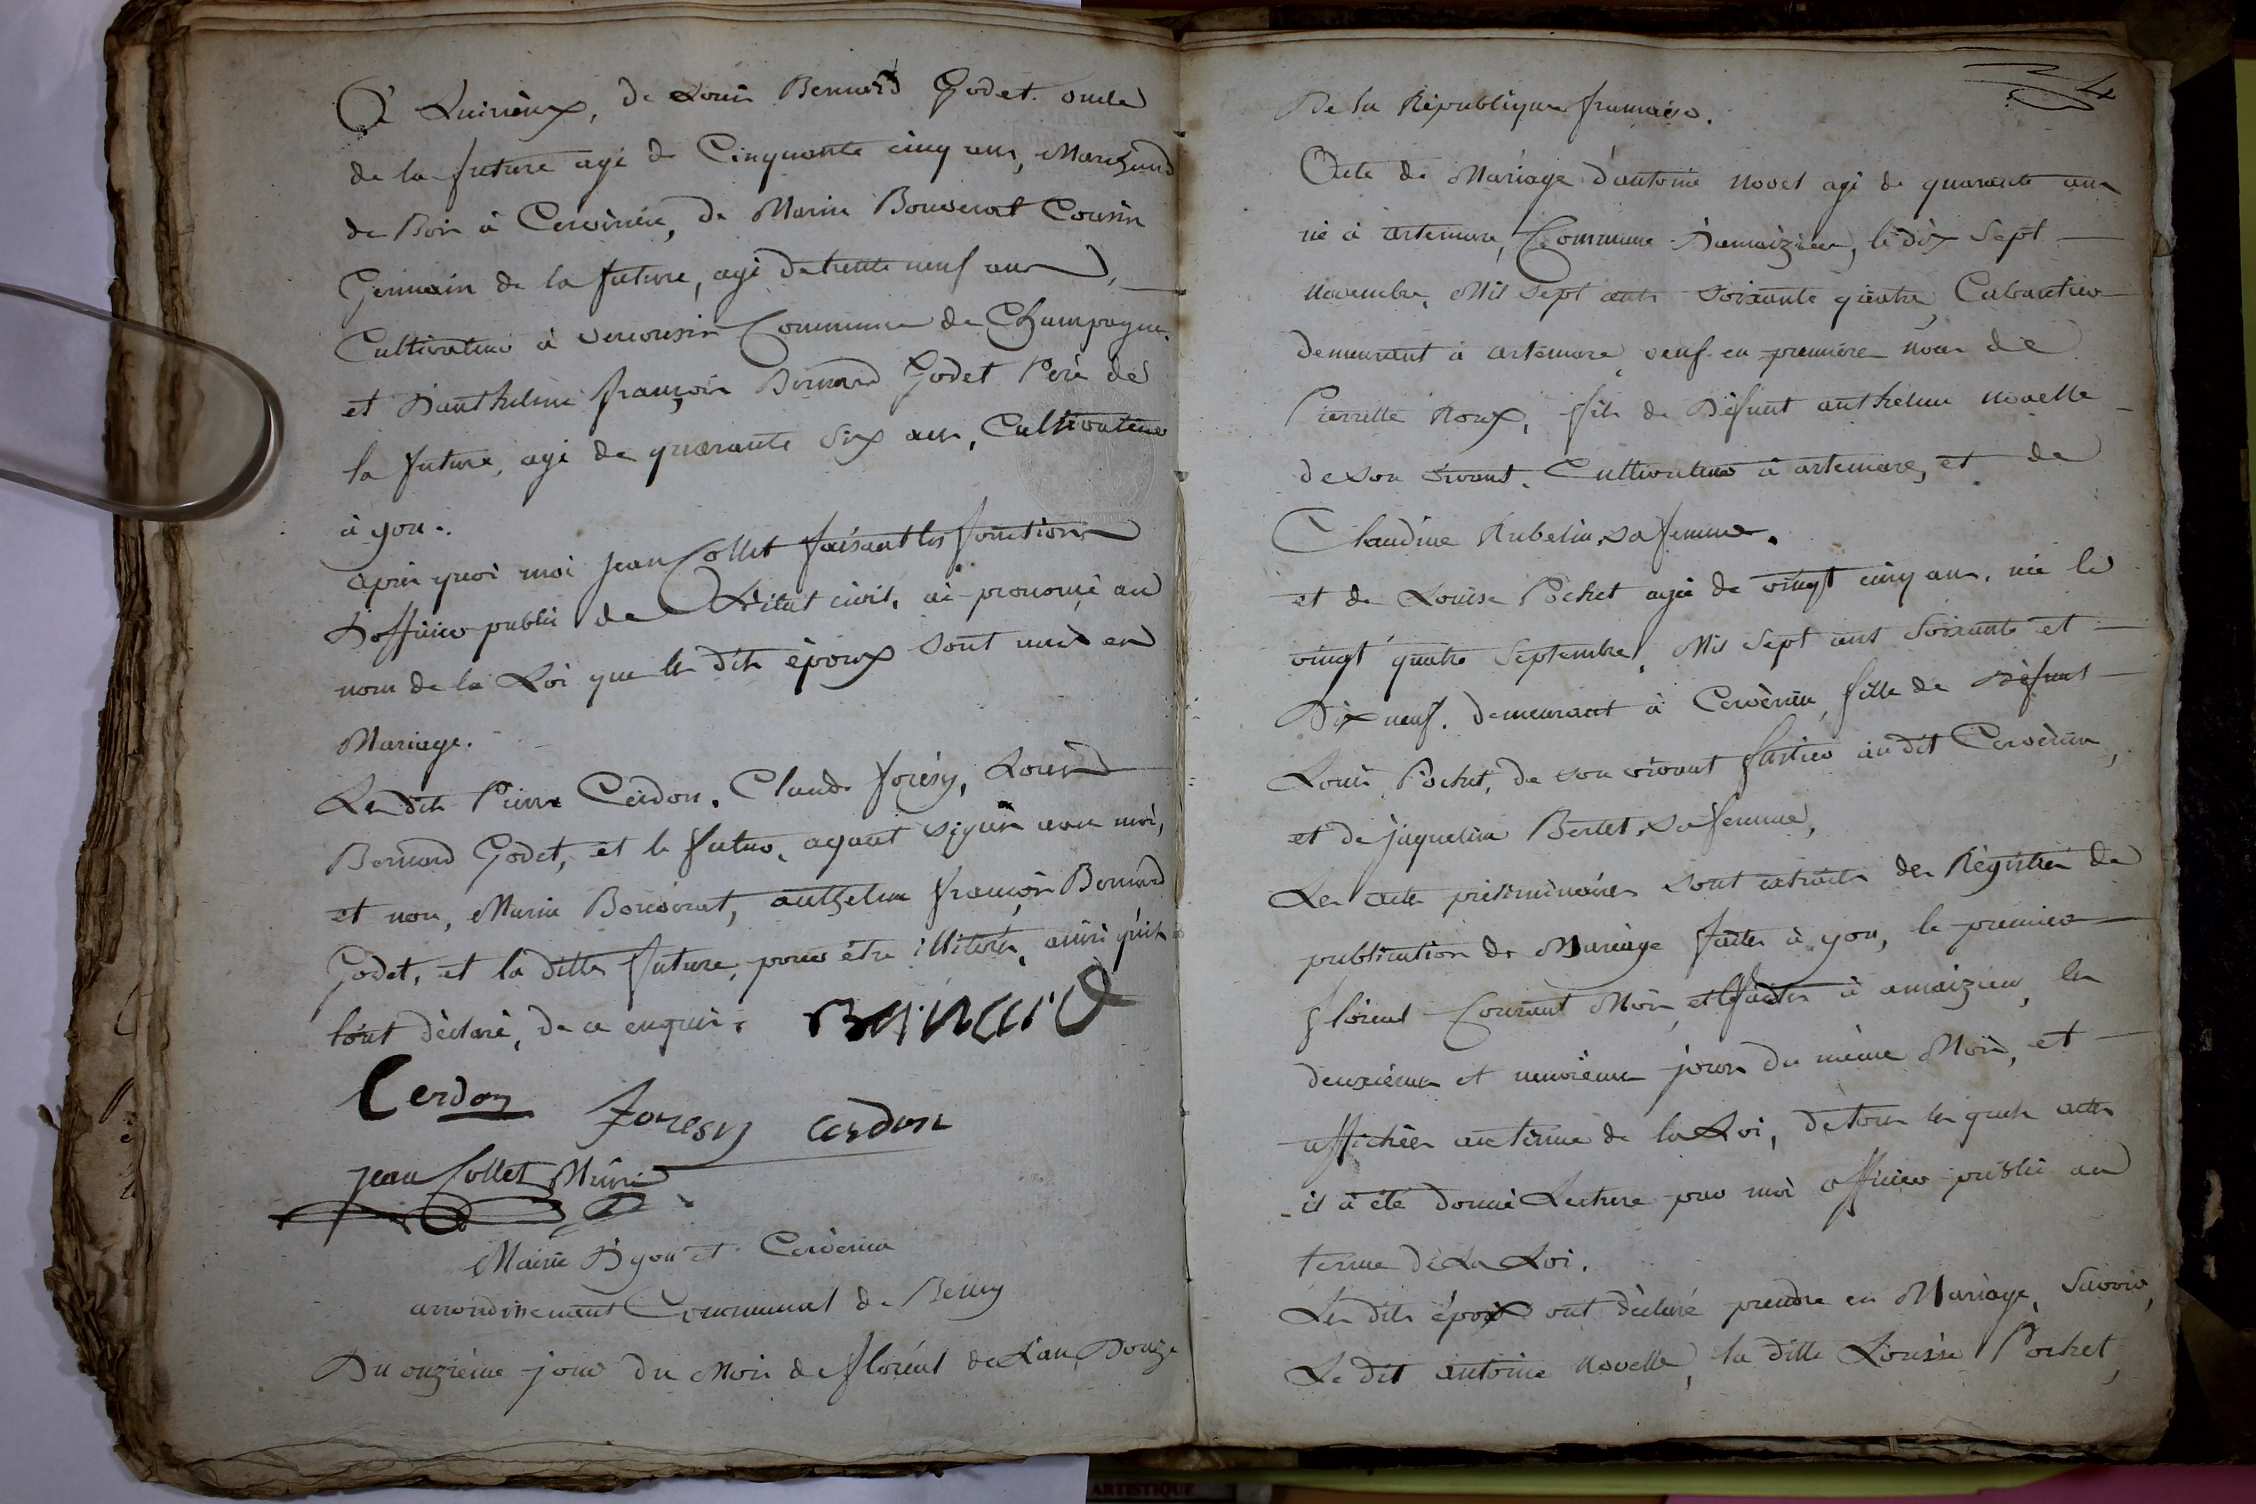 à Luirieux, de Louis Bernard Godet oncle
de la future agé de Cinquante cinq ans, Marchand
de Bois à Cerverieu, de Marin Bouverat Cousin
Germain de la future, agé de trente neuf ans,
Cultivateur à vercosin Commune de Champagne,
et D'anthelme françois Bernard Godet Pere de
la future, agé de quarante six ans, Cultivateur
à yon.
apres quoi moi jean Collet faisant les fonctions
D'officier public de L'état civil, ai prononcé au
nom de la Loi que les dits époux sont unis en
Mariage.
Les dits Pierre Cerdon, Claude foresy, Louis
Bernard Godet, et le futur, ayant signés avec moi,
et non, Marin Bouverat, anthelme françois Bernard
Godet, et la ditte future, pour être illiterés, ainsi qu'ils
l'ont déclaré, de ce enquis.
Bernard
Cerdon foresy cerdon
jean Collet Maire
Mairie D'yon et Cerverieu
arrondissement Communal de Belley
Du onzième jour du Mois de floréal de L'an Douze
De la Républiquve française.
Acte de Mariage d'antoine novel agé de quarante ans
né à artemare, Commune Damaizieu, le dix sept
novembre, Mil sept cents soixante quatre, Cabaretier
demeurant à artemare veuf en premiere noces de
Pierrette Roux, fils de Défunt anthelme novelle
de son vivant, Cultivateur à artemare, et de
Claudine Rubelin, sa femme.
et de Louise Pochet agée de vingt cinq ans, née le
vingt quatre Septembre, Mil sept cent soixante et
Dix neuf. demeurant à Cerverieu, fille de Défunt
Louis Pochet, de son vivant au dit Cerverieu,
et de jaqueline Bertet, sa femme,
Les actes préliminaires sont extraits des Régistres de
publication de Mariage faites à yon, le premier
floréal Courant Mois, et faites à amaizieu, les
deuxième et neuvième jours du même Mois, et
affichées au terme de la Loi, de tous les quels actes
il a été donné Lecture par moi officier public au
terme de La Loi.
Les dits époux ont déclaré prendre en Mariage, Savoir,
Le dit antoine novelle, la ditte Louise Pochet,